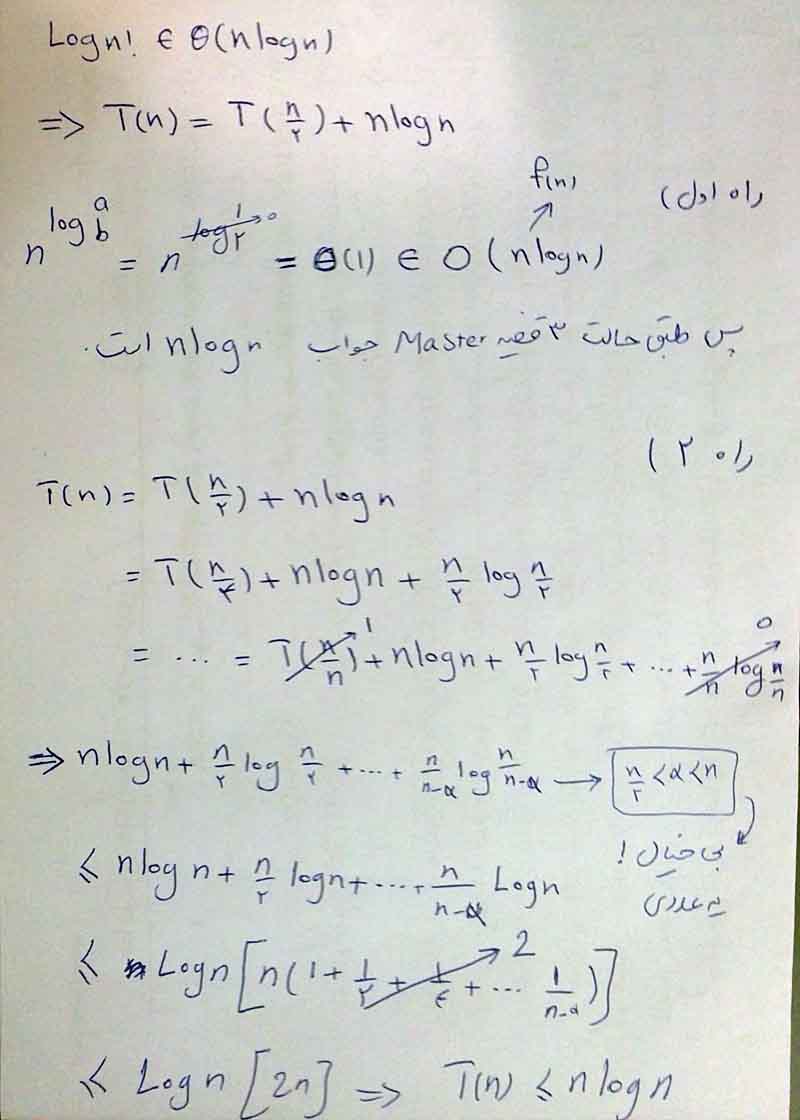 Log n! ∈ Θ(n log n)
⇒ T(n) = T(n/۲) + n log n
راه اول)
f(n)
n^(log_b a) = n^(log_۲ 1 → 0) = Θ(1) ∈ O(n log n)
پس طبق حالت ۳ قضیه Master جواب n log n است.
راه ۲)
T(n) = T(n/۲) + n log n
= T(n/۴) + n log n + n/۲ log n/۲
= ... = T(n/n) → 1 + n log n + n/۲ log n/۲ + ... + n/n log n/n → 0
⇒ n log n + n/۲ log n/۲ + ... + n/(n-α) log n/(n-α) → n/۲ < α < n
بی خیال !
یه عددی
≤ n log n + n/۲ log n + ... + n/(n-α) Log n
≤ Log n [n(1 + 1/۲ + 1/۴ + ... 1/(n-α))] → 2
≤ Log n [2n] ⇒ T(n) ≤ n log n